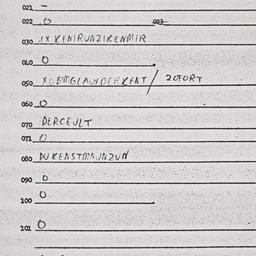 021 –
022 0 003
030 XX KENIRUNZIKENMIR
040 0
050 / ZOFORT
060 0
070 DERCEULT
071 0
080 DU KENSTMAUNZUN
090 0
100 0
101 0